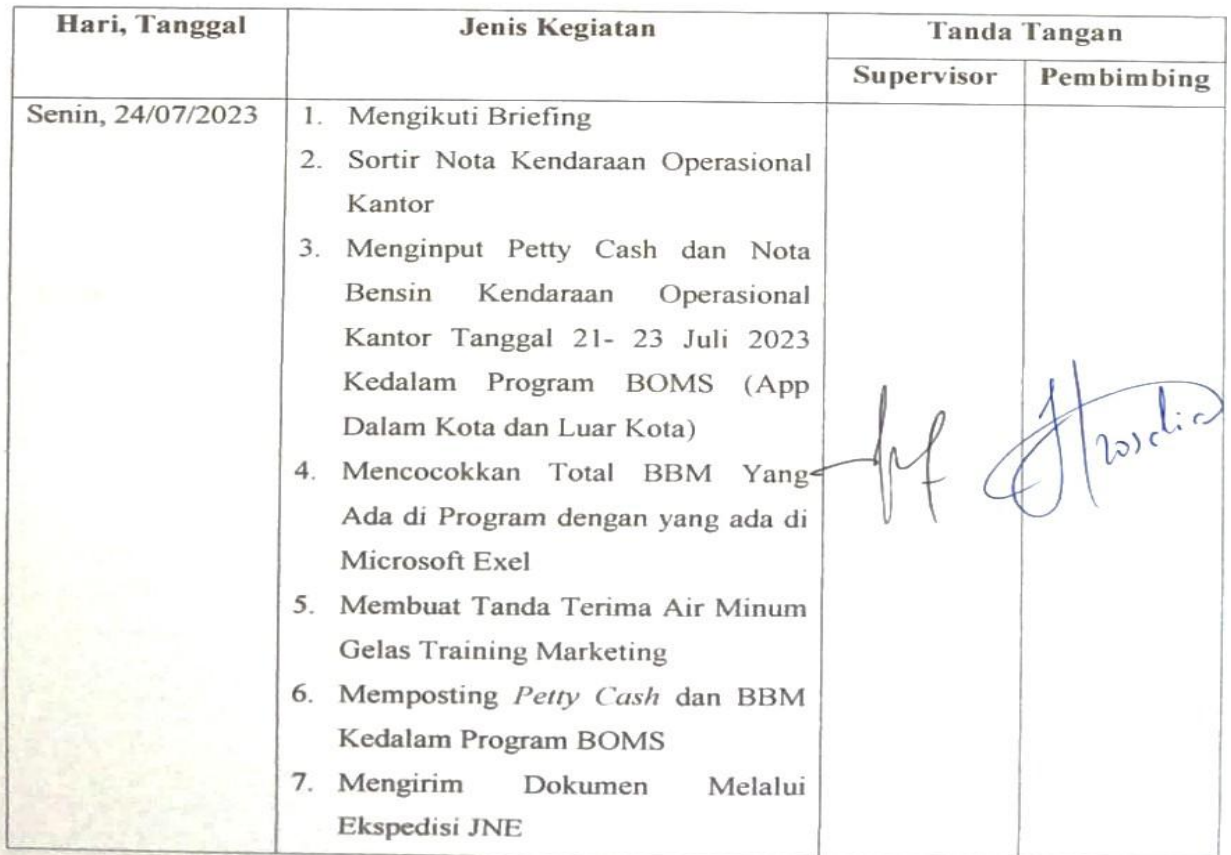 Hari, Tanggal
Jenis Kegiatan
Tanda Tangan
Supervisor
Pembimbing
Senin, 24/07/2023
1. Mengikuti Briefing
2. Sortir Nota Kendaraan Operasional
Kantor
3. Menginput Petty Cash dan Nota
Bensin Kendaraan Operasional
Kantor Tanggal 21- 23 Juli 2023
Kedalam Program BOMS (App
Dalam Kota dan Luar Kota)
4. Mencocokkan Total BBM Yang
Ada di Program dengan yang ada di
Microsoft Exel
5. Membuat Tanda Terima Air Minum
Gelas Training Marketing
6. Memposting Petty Cash dan BBM
Kedalam Program BOMS
7. Mengirim Dokumen Melalui
Ekspedisi JNE